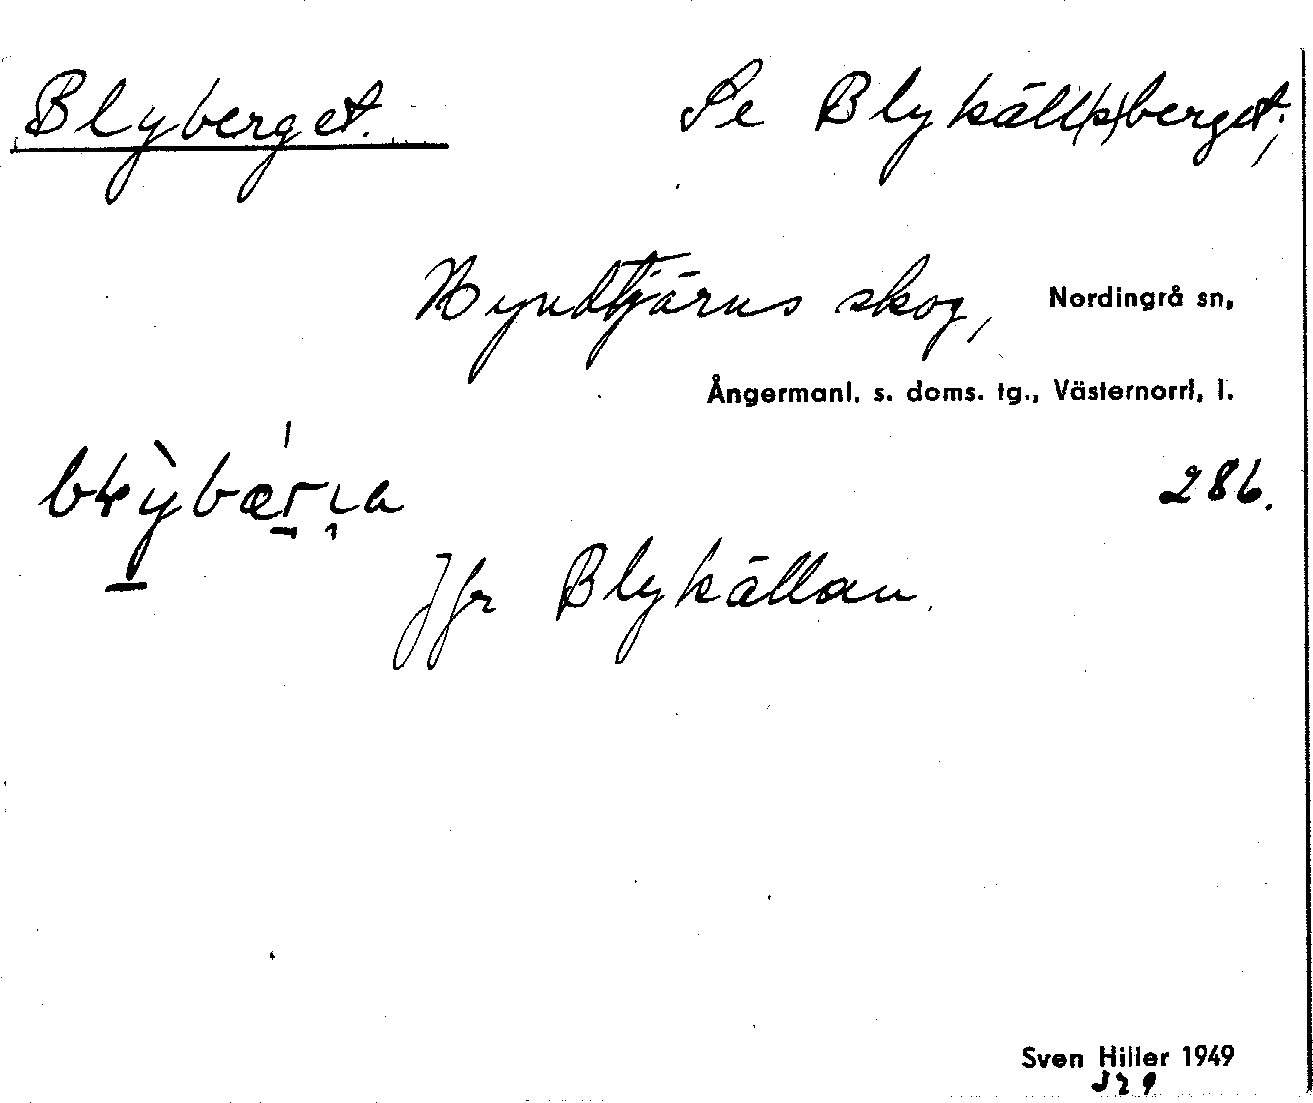 Blyberget. Se Blykäll(s)berget;
Hyndtjärns skog, Nordingrå sn,
Ångermanl. s. doms. tg., Västernorrl, l.
286.
Jfr Blykällan.
Sven Hiller 1949